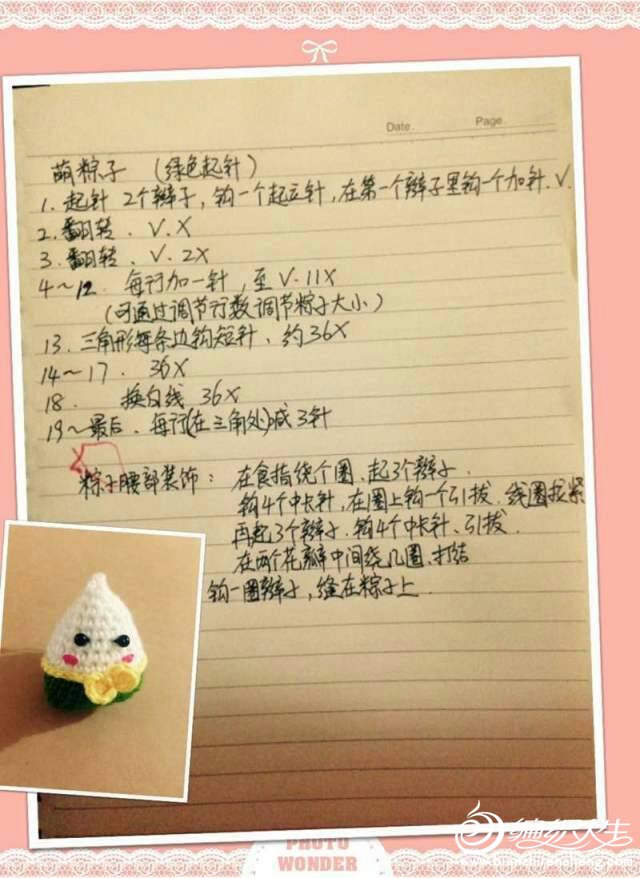 Date.
Page
萌粽子 (绿色起针)
1. 起针 2个辫子, 钩一个起立针, 在第一个辫子里钩一个加针.V.
2. 翻转. V. X
3. 翻转. V. 2X
4～12. 每行加一针, 至 V. 11X
(可通过调节行数调节粽子大小)
13. 三角形每条边钩短针、约36X
14～17. 36X
18. 换白线 36X
19～最后. 每行(在三角处)减3针
粽子腰部装饰: 在食指绕个圈. 起3个辫子.
钩4个中长针, 在圈上钩一个引拔. 线圈拔紧
再起3个辫子. 钩4个中长针、引拔.
在两个花瓣中间绕几圈、打结
钩一圈辫子, 缝在粽子上.
PHOTO
WONDER
编织人生
www.bianzhirensheng.com